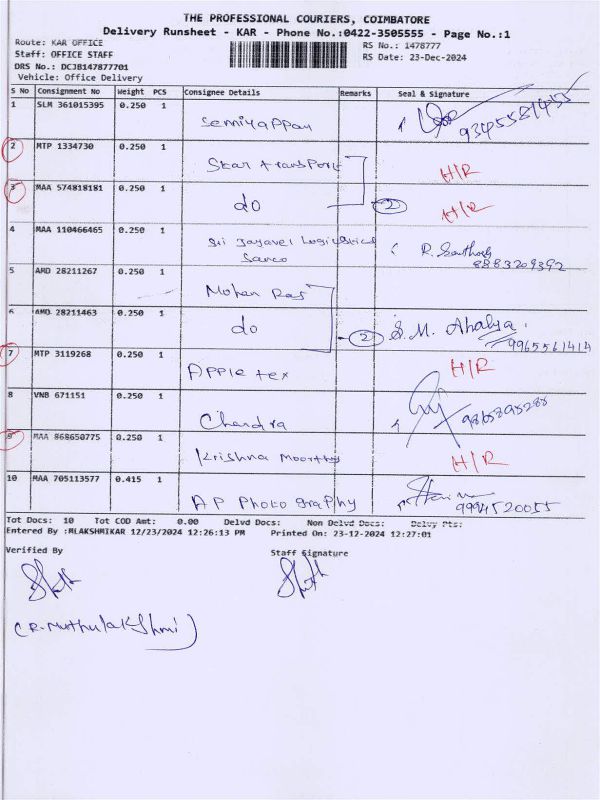 THE PROFESSIONAL COURIERS, COIMBATORE
Delivery Runsheet - KAR - Phone No.:0422-3505555 - Page No.:1
Route: KAR OFFICE
RS No.: 1478777
Staff: OFFICE STAFF
RS Date: 23-Dec-2024
DRS No.: DC3B147877701
Vehicle: Office Delivery
S No Consignment No Weight PCS Consignee Details Remarks Seal & Signature
1 SLM 361015395 0.250 1
Semiyappan 9345581455
2 MTP 1334730 0.250 1
Star transport H/R
3 MAA 574818181 0.250 1
do 2 H/R
4 MAA 110466465 0.250 1
Sri Jayavel Logistics R.
Sanco 8883209392
5 AMD 28211267 0.250 1
Mohan Raj
6 AMD 28211463 0.250 1
do 2 S.M. Ahalya.
9965561414
7 MTP 3119268 0.250 1
Apple tex H/R
8 VNB 671151 0.250 1
Chandra 9865895288
9 MAA 868650775 0.250 1
Krishna Moorthy H/R
10 MAA 705113577 0.415 1
AP Photography 9994520055
Tot Docs: 10 Tot COD Amt: 0.00 Delvd Docs: Non Delvd Docs: Delvy Pts:
Entered By :MLAKSHMIKAR 12/23/2024 12:26:13 PM Printed On: 23-12-2024 12:27:01
Verified By Staff Signature
(R. Muthulakshmi)